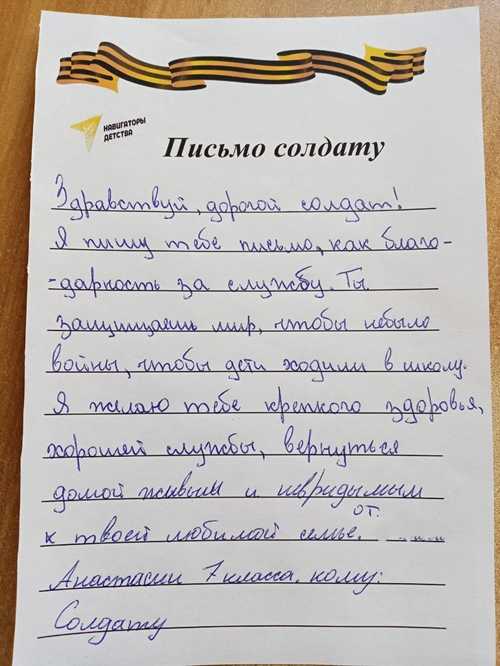 НАВИГАТОРЫ
ДЕТСТВА
Письмо солдату
Здравствуй, дорогой солдат!
Я пишу тебе письмо, как благо-
-дарность за службу. Ты
защищаешь мир, чтобы небыло
войны, чтобы дети ходили в школу.
Я желаю тебе крепкого здоровья,
хорошей службы, вернуться
домой живым и невридымым
к твоей любимой семье. от.
Анастасии 7 класса. кому:
Солдату